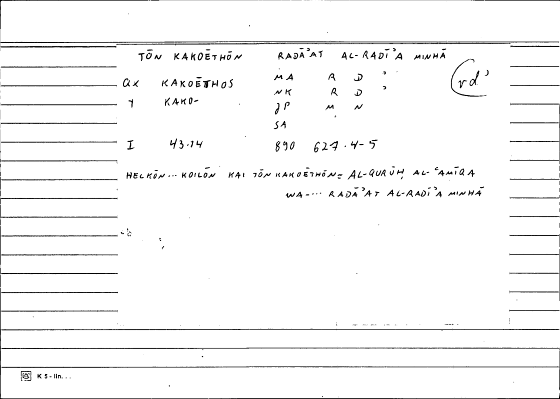 TŌN KAKOĒTHŌN RADĀʾAT AL-RADĪʾA MINHĀ
QX KAKOĒTHOS MA R D ʾ
Y KAKO- NK R D ʾ
JP M N
SA
I 43.14 890 627.4-5
HELKŌN... KOILŌN KAI TŌN KAKOĒTHŌN = AL-QURŪḤ AL-ʿAMĪQA
WA-... RADĀʾAT AL-RADĪʾA MINHĀ
rdʾ
K 5 - lin. . .